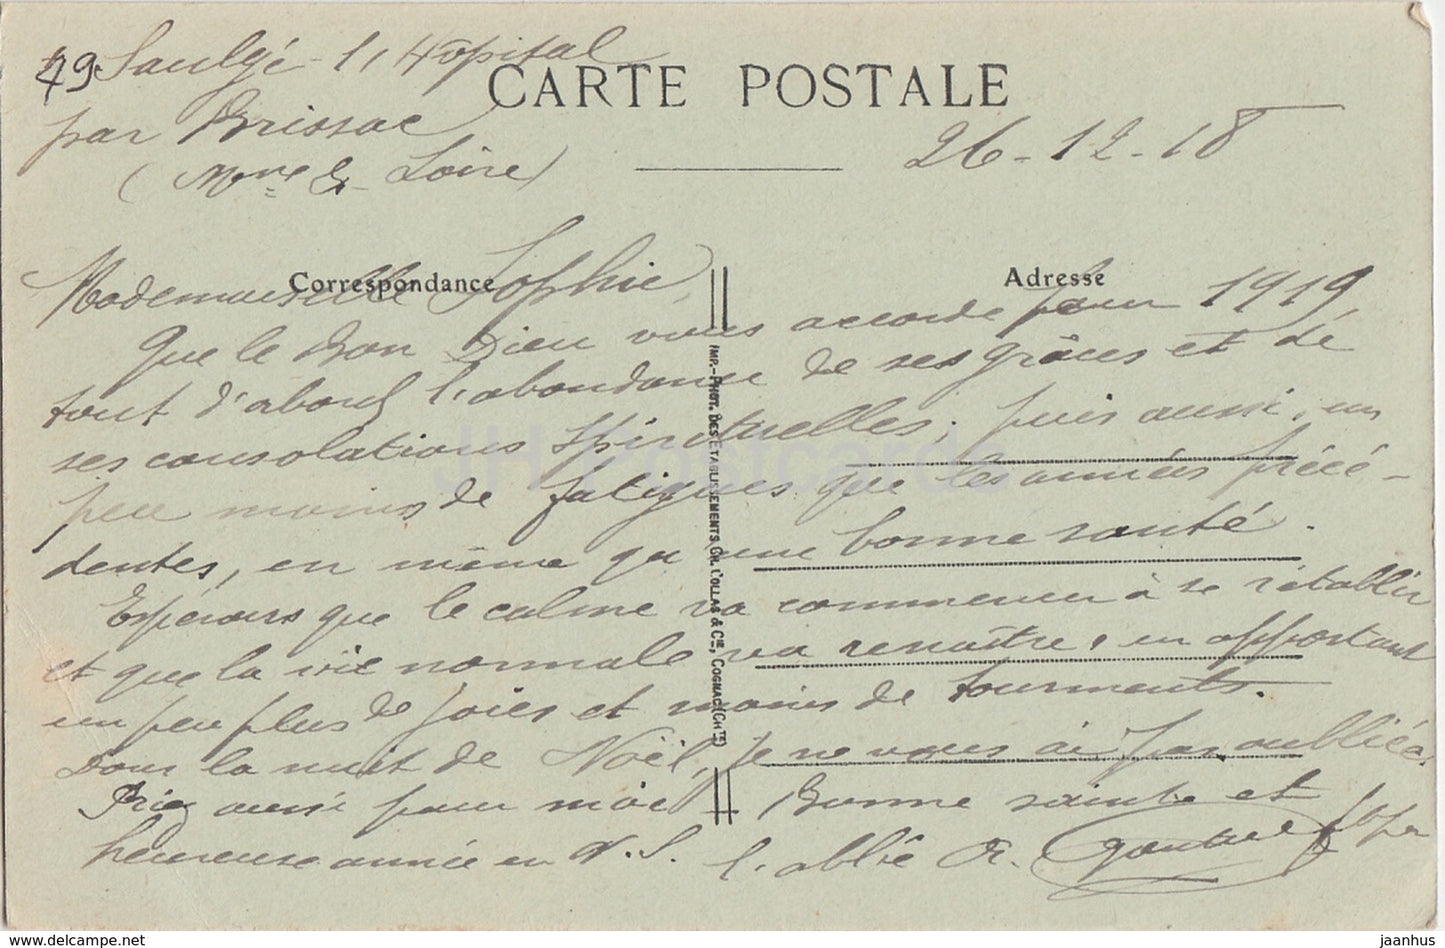 49 Saulgé-l'Hôpital
CARTE POSTALE
par Brissac
26-12-18
(Mne & Loire)
Correspondance
Adresse
Mademoiselle Sophie,
Que le Bon Dieu vous accorde pour 1919,
tout d'abord l'abondance de ses grâces et de
ses consolations spirituelles, puis aussi, un
peu moins de fatigues que les années précé-
dentes, en même qu'une bonne santé.
Espérons que le calme va commencer à se rétablir
et que la vie normale va renaître, en apportant
un peu plus de joies et moins de tourments.
Dans la nuit de Noël, je ne vous ai pas oubliée.
Priez aussi pour moi Bonne sainte et
heureuse année en N. S. l'abbé R.
IMP.-PHOT. DES ETABLISSEMENTS CH. COLLAS & Cie, COGNAC (Chte)
JH Postcards
www.delcampe.net
jaanhus